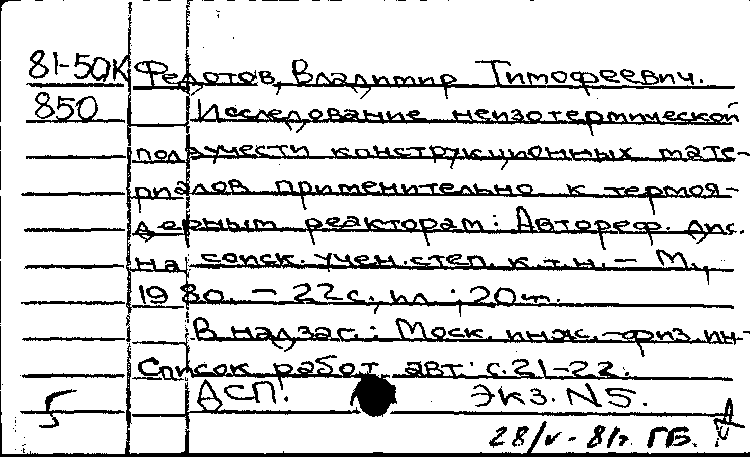 81-50К Федотов, Владимир Тимофеевич.
850 Исследование неизотермической
ползучести конструкционных мате-
риалов применительно к термоя-
дерным реакторам: Автореф. дис.
на соиск. учен. степ. к.т.н. - М.,
1980. - 22 с., ил.; 20 см.
В надзаг.: Моск. инж.-физ. ин-
Список работ авт: с. 21-22.
ДСП! Экз. N5.
28/V-81г. ГБ.